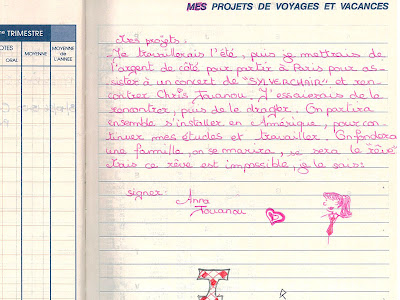 MES PROJETS DE VOYAGES ET VACANCES
TRIMESTRE
NOTES
ORAL
MOYENNE
MOYENNE
de
L'ANNÉE
Mes projets:
-Je travaillerais l'été, puis je mettrais de
l'argent de côté pour partir à Paris pour as-
sister à un concert de "SYLVERCHAIR" et ren-
contrer Chris Jouanou. J'essaierais de le
rencontrer, puis de le draguer. On partira
ensemble s'installer en Amérique, pour con-
tinuer mes études et travailler. On fondera
une famille, on se marira, se sera le "rêve"
Mais ce rêve est impossible, je le sais:
signer:
Anna
Jouanou